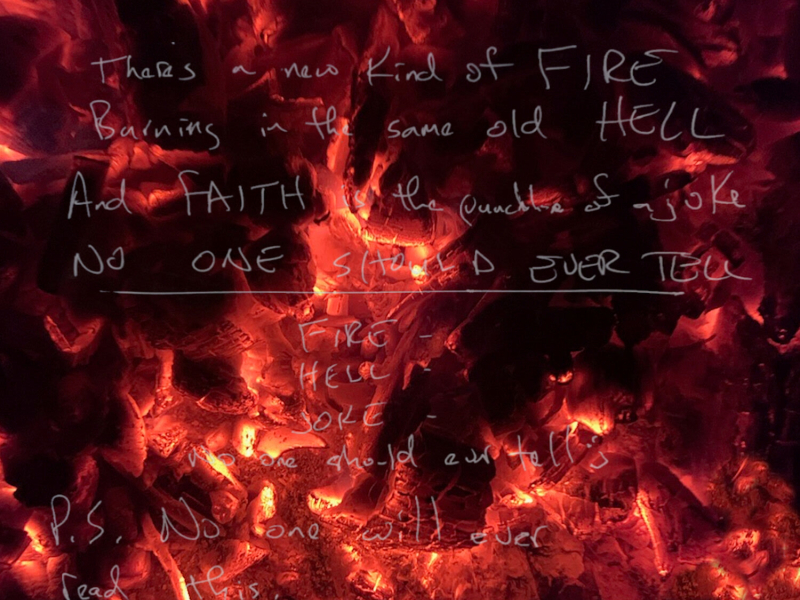 There's a new kind of FIRE
Burning in the same old HELL
And FAITH is the punchline of a joke
NO ONE SHOULD EVER TELL
FIRE -
HELL -
JOKE -
no one should ever tell :)
P.S. No one will ever
read this.